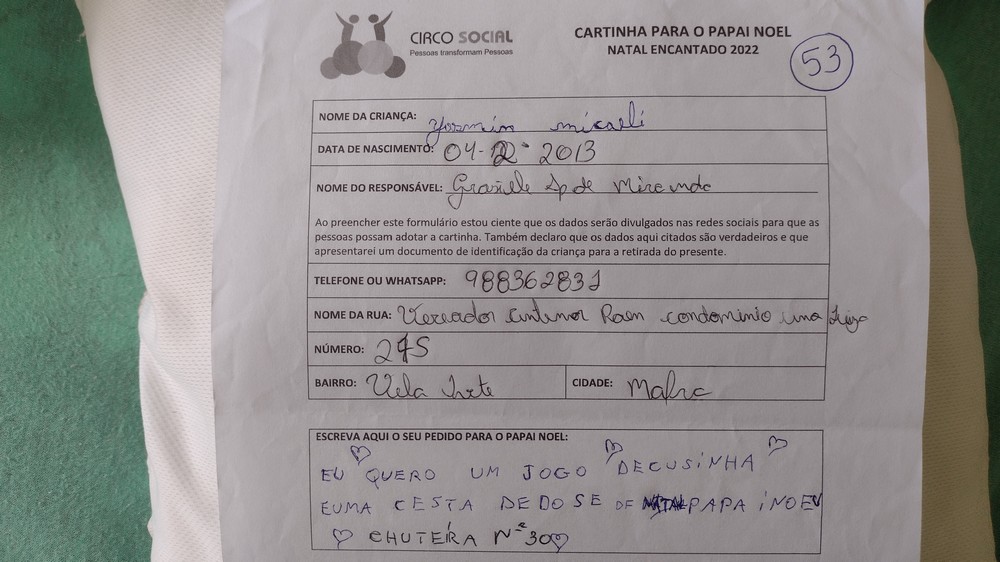 CIRCO SOCIAL
Pessoas transformam Pessoas
CARTINHA PARA O PAPAI NOEL
NATAL ENCANTADO 2022
53
NOME DA CRIANÇA: Yasmin micaeli
DATA DE NASCIMENTO: 04-12-2013
NOME DO RESPONSÁVEL: Ap de Miranda
Ao preencher este formulário estou ciente que os dados serão divulgados nas redes sociais para que as
pessoas possam adotar a cartinha. Também declaro que os dados aqui citados são verdadeiros e que
apresentarei um documento de identificação da criança para a retirada do presente.
TELEFONE OU WHATSAPP: 988362831
NOME DA RUA: Vereador condominio
NÚMERO:
BAIRRO: CIDADE: Mafra
ESCREVA AQUI O SEU PEDIDO PARA O PAPAI NOEL:
EU QUERO UM JOGO DECUSINHA
EUMA CESTA DEDOSE DE NATAL PAPAINOEU
CHUTEIRA Nº 30